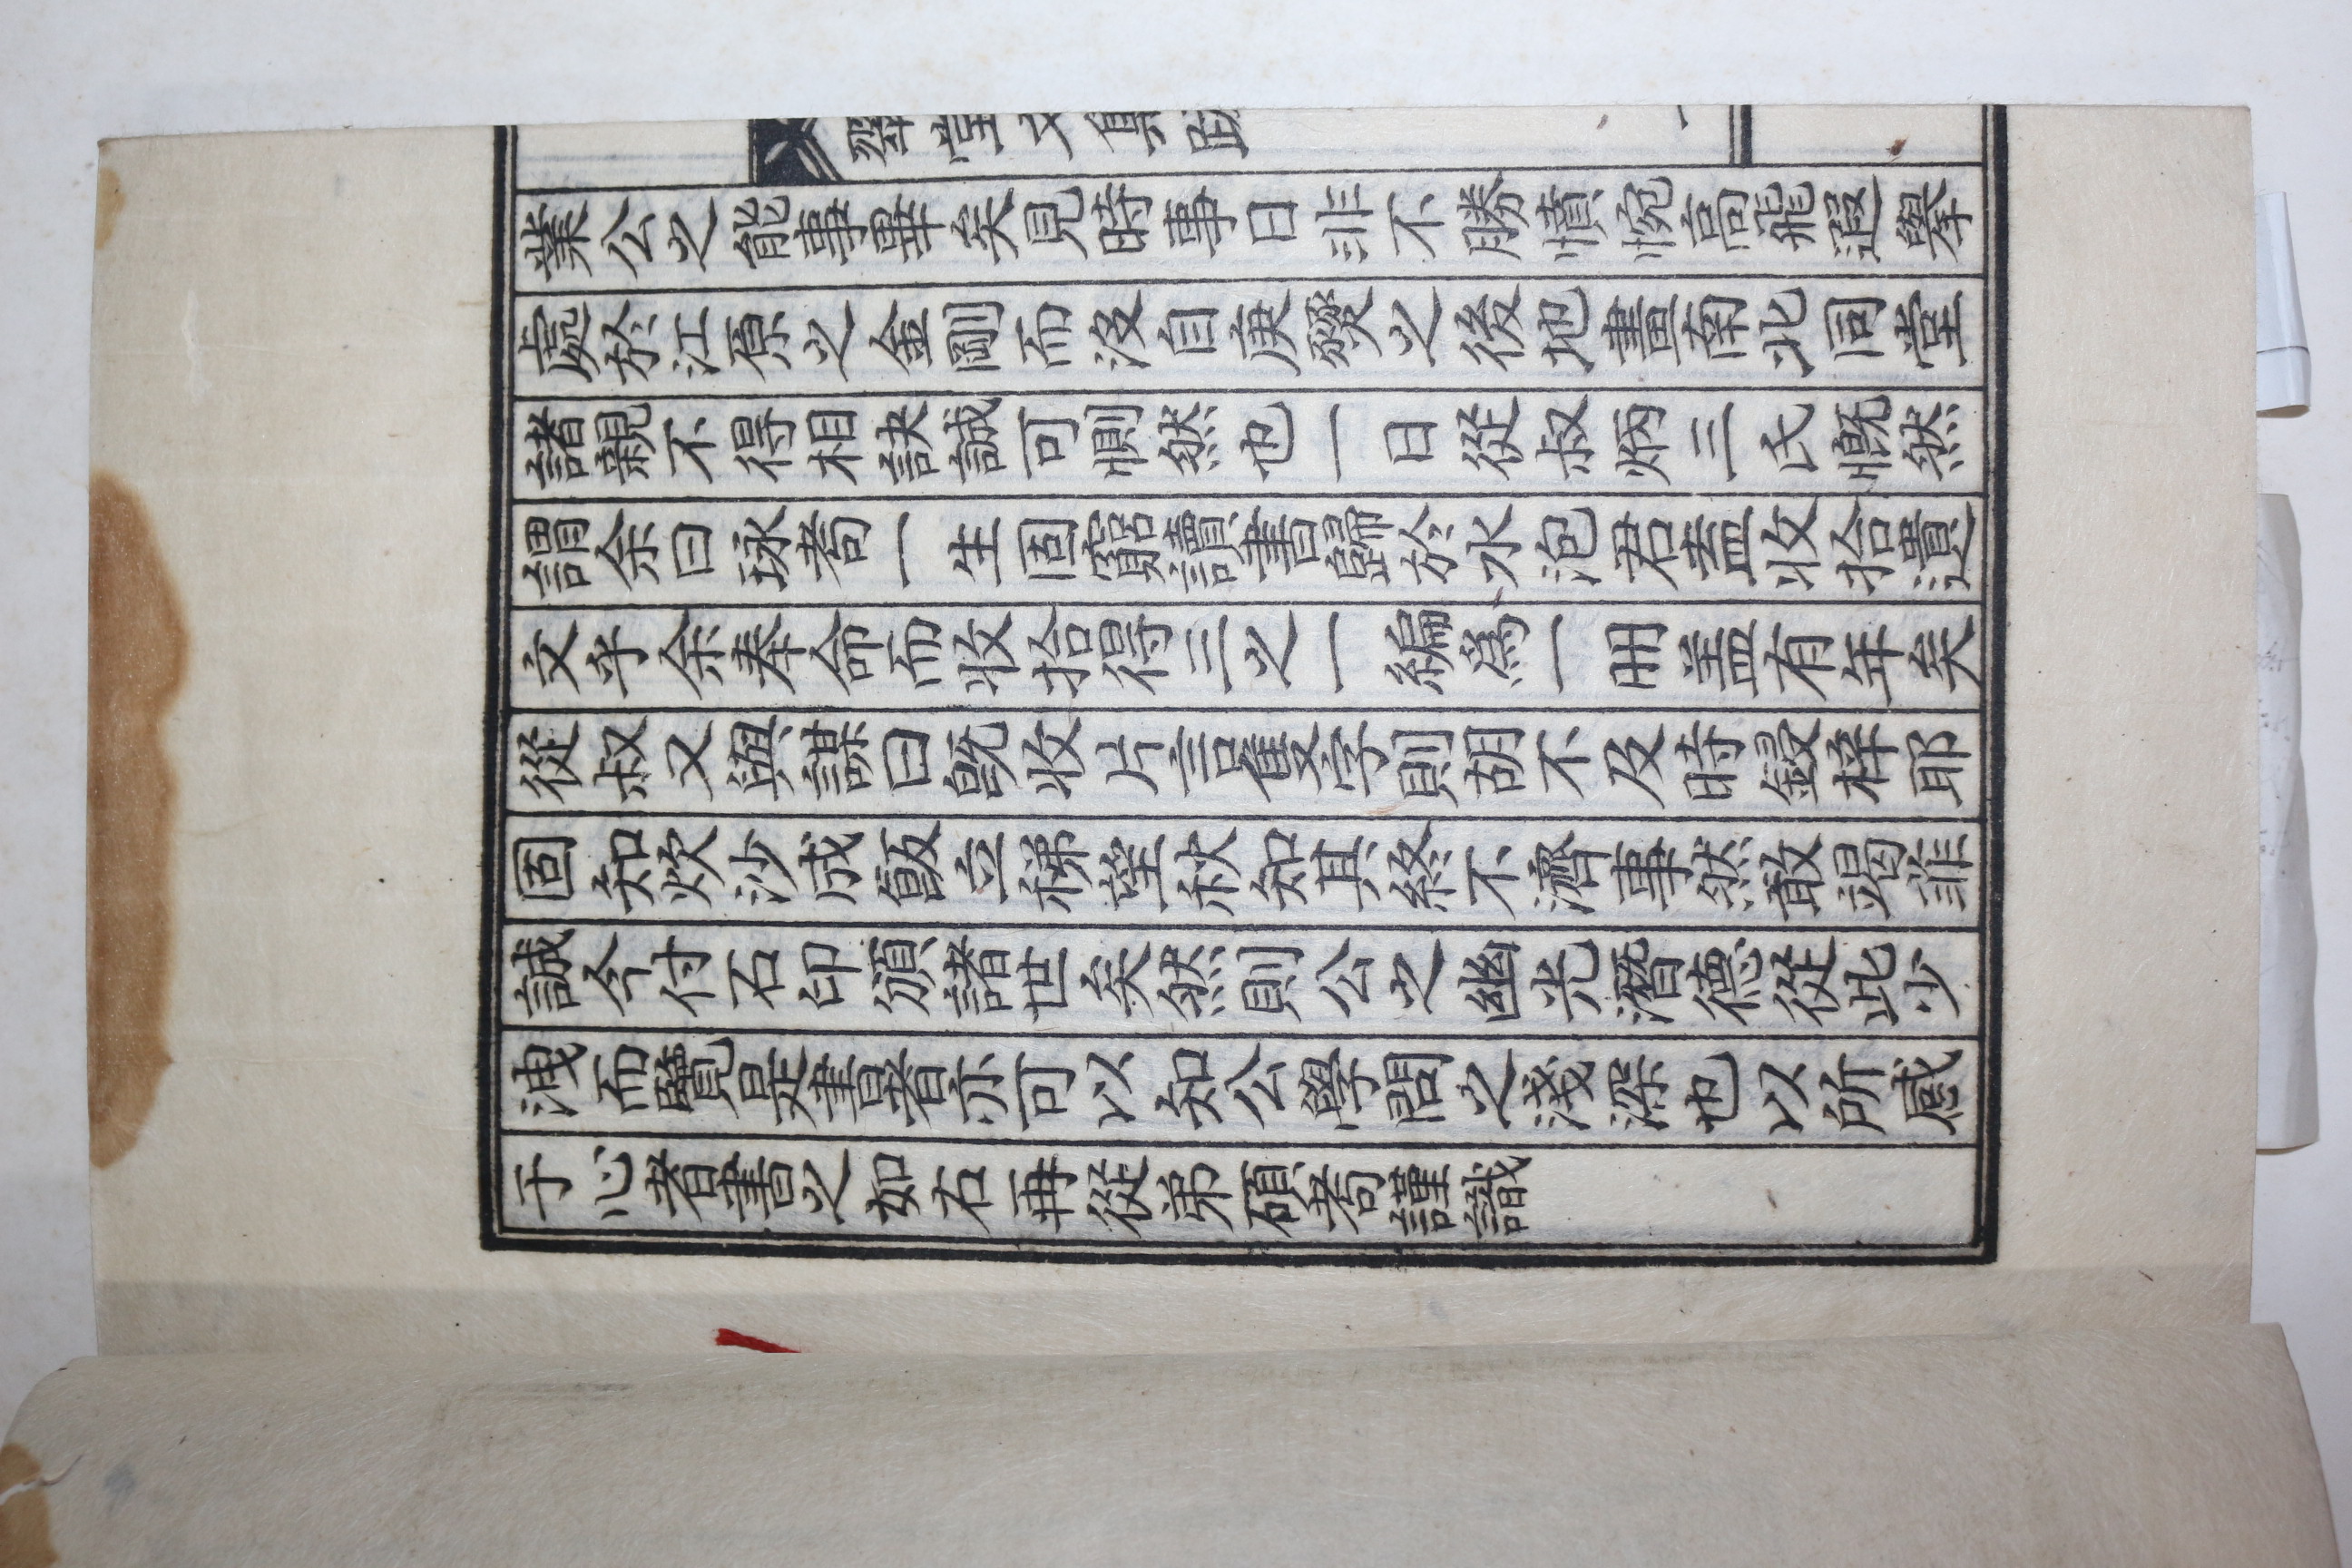 業公之能事畢矣見時事日非不勝憤惋高飛遐擧
處於江原之金剛而沒自庚燹之後地畫南北同堂
諸親不得相訣誠可惻然也一日從叔炳三氏慨然
謂余曰琢若一生固窮讀書歸於水泡君盍收拾遺
文乎余奉命而收拾得三之一編爲一冊盖有年矣
從叔又與謀曰旣收片言隻字則胡不及時鋟梓耶
固知炊沙成飯之稊望秋知其終不濟事然敢竭誹
誠今付石印頒諸世矣然則公之幽光潛德從此少
洩而覽是書者亦可以知公學問之淺深也以所感
于心者書之如右再從弟碩若謹識